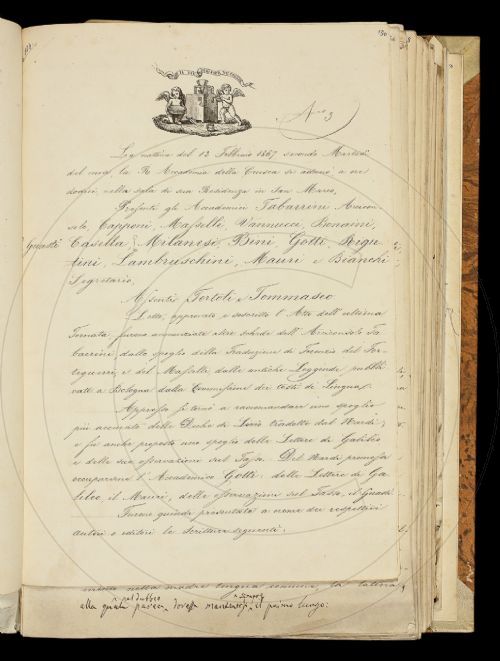 130
N.ro 3
La mattina del 12 Febbraio 1867 secondo Martedì
del mese la R. Accademia della Crusca si adunò a ore
dodici nella sala di sua Residenza in San Marco.
Presenti gli Accademici Tabarrini Arcicon-
solo, Capponi, Maselli, Vannucci, Bonaini,
Guasti
Casella, Milanesi, Bini, Gotti, Rigu-
tini, Lambruschini, Mauri e Bianchi
Segretario,
Assenti Tortoli e Tommaseo
Letto, approvato e sottoscritto l'Atto dell'ultima
Tornata, furono annunciate altre schede dell'Arciconsolo Ta-
barrini dallo spoglio della Traduzione di Terenzio del For-
teguerri, e del Maselli dalle antiche Leggende pubbli-
cate a Bologna dalla Commissione dei testi di Lingua.
Appresso si tornò a raccomandare uno spoglio
più accurato delle Deche di Livio tradotte dal Nardi;
e fu anche proposto uno spoglio delle Lettere di Galileo
e delle sue osservazioni sul Tasso. Del Nardi promise
occuparsene l'Accademico Gotti; delle Lettere di Ga-
lileo, il Mauri; delle osservazioni sul Tasso, il Guasti.
Furono quindi presentate a nome dei rispettivi
autori o editori le Scritture seguenti:
nella madre lingua comune la latina
alla quale pareva dovesse mantenersi il primo luogo: